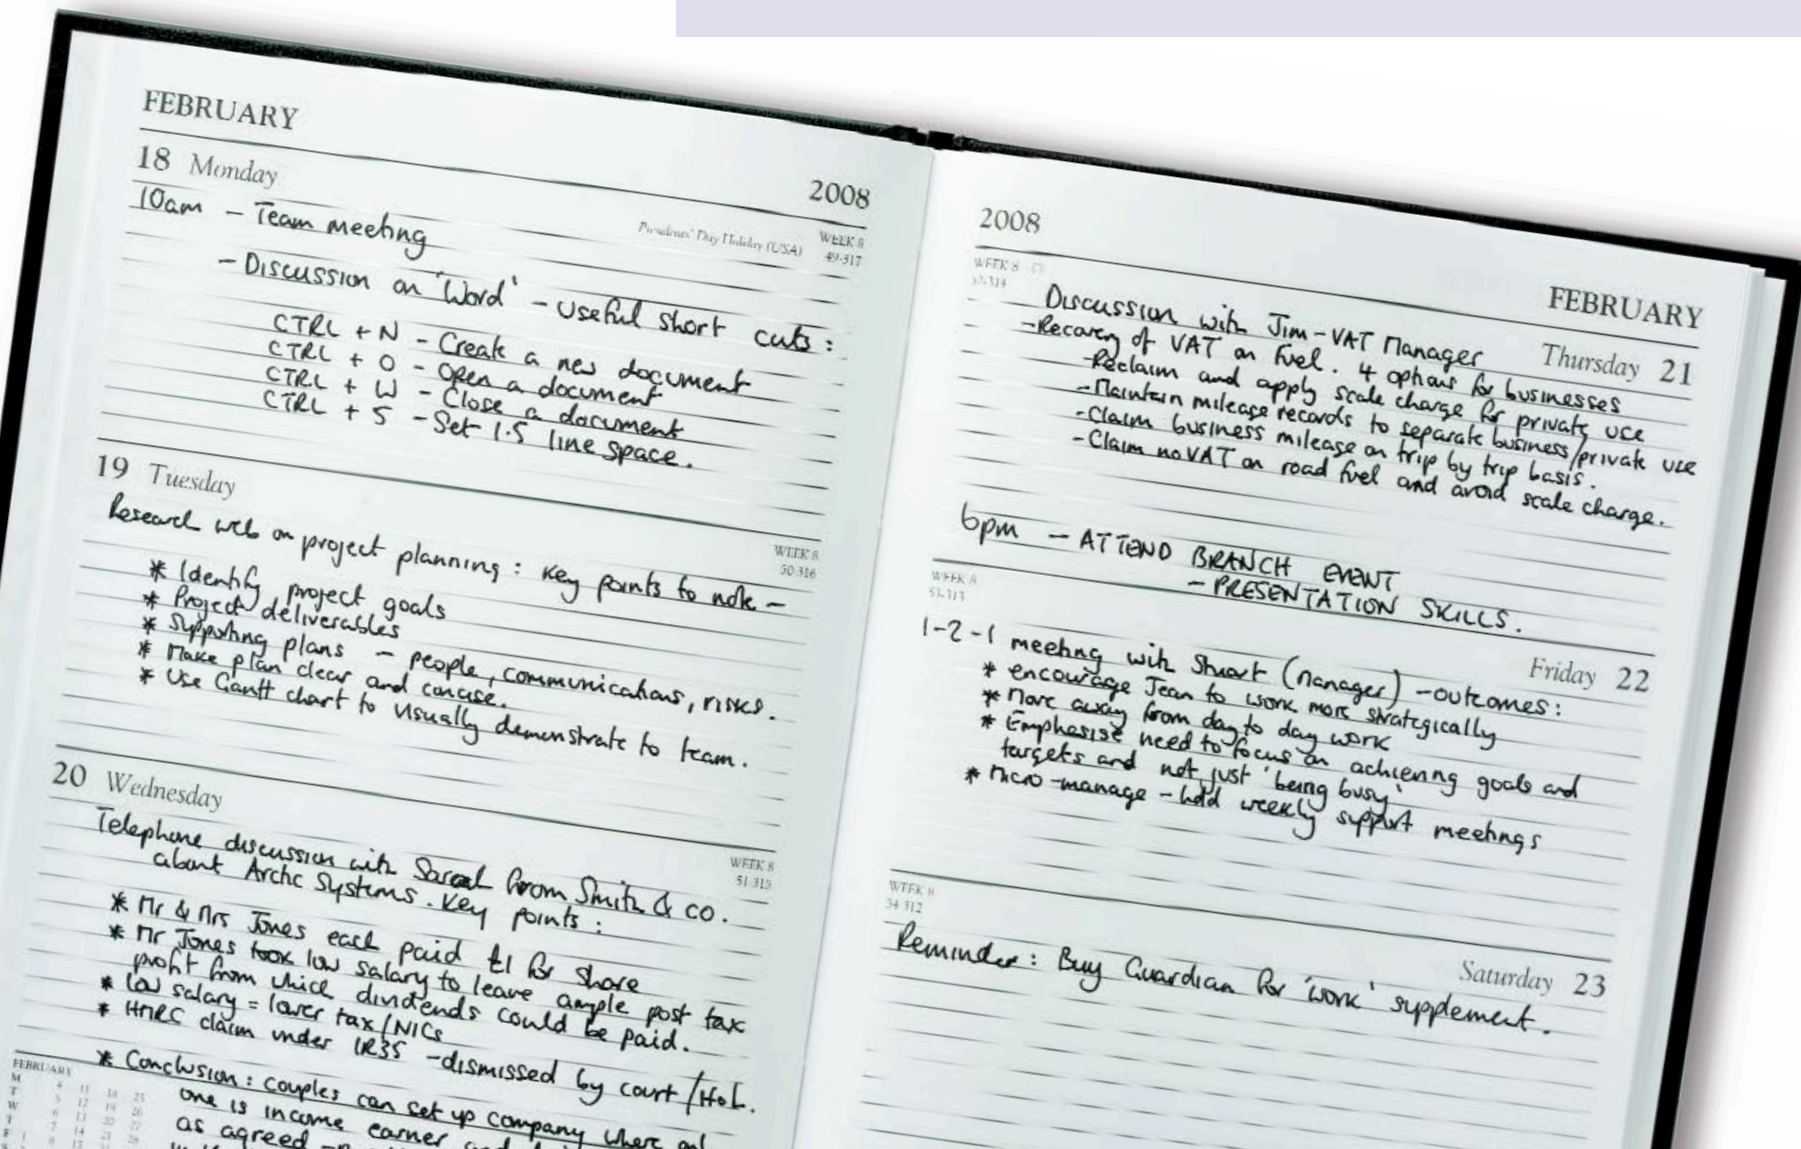 FEBRUARY
18 Monday
2008
Presidents' Day Holiday (USA)
WEEK 8
49-317
10am - Team meeting
- Discussion on 'Word' - useful short cuts:
CTRL + N - Create a new document
CTRL + O - Open a document
CTRL + W - Close a document
CTRL + 5 - Set 1.5 line space.
19 Tuesday
WEEK 8
50-316
Research web on project planning: Key points to note -
* Identify project goals
* Project deliverables
* Supporting plans - people, communications, risks.
* Make plan clear and concise.
* Use Gantt chart to visually demonstrate to team.
20 Wednesday
WEEK 8
51-315
Telephone discussion with Sarah from Smith & co.
about Arctic Systems. Key points:
* Mr & Mrs Jones each paid £1 for share
* Mr Jones took low salary to leave ample post tax
profit from which dividends could be paid.
* low salary = lower tax/NICs
* HMRC claim under IR35 - dismissed by court/HoL.
* Conclusion: couples can set up company where only
one is income earner and
as agreed
FEBRUARY
M 4 11 18 25
T 5 12 19 26
W 6 13 20 27
T 7 14 21 28
2008
FEBRUARY
WEEK 8
52-314
Thursday 21
Discussion with Jim - VAT Manager
- Recovery of VAT on fuel. 4 options for businesses
- Reclaim and apply scale charge for private use
- Maintain mileage records to separate business/private use
- Claim business mileage on trip by trip basis.
- Claim no VAT on road fuel and avoid scale charge.
6pm - ATTEND BRANCH EVENT
- PRESENTATION SKILLS.
WEEK 8
53-313
Friday 22
1-2-1 meeting with Stuart (manager) - outcomes:
* encourage Jean to work more strategically
* Move away from day to day work
* Emphasise need to focus on achieving goals and
targets and not just 'being busy'
* Micro-manage - hold weekly support meetings
WEEK 8
54-312
Saturday 23
Reminder: Buy Guardian for 'work' supplement.